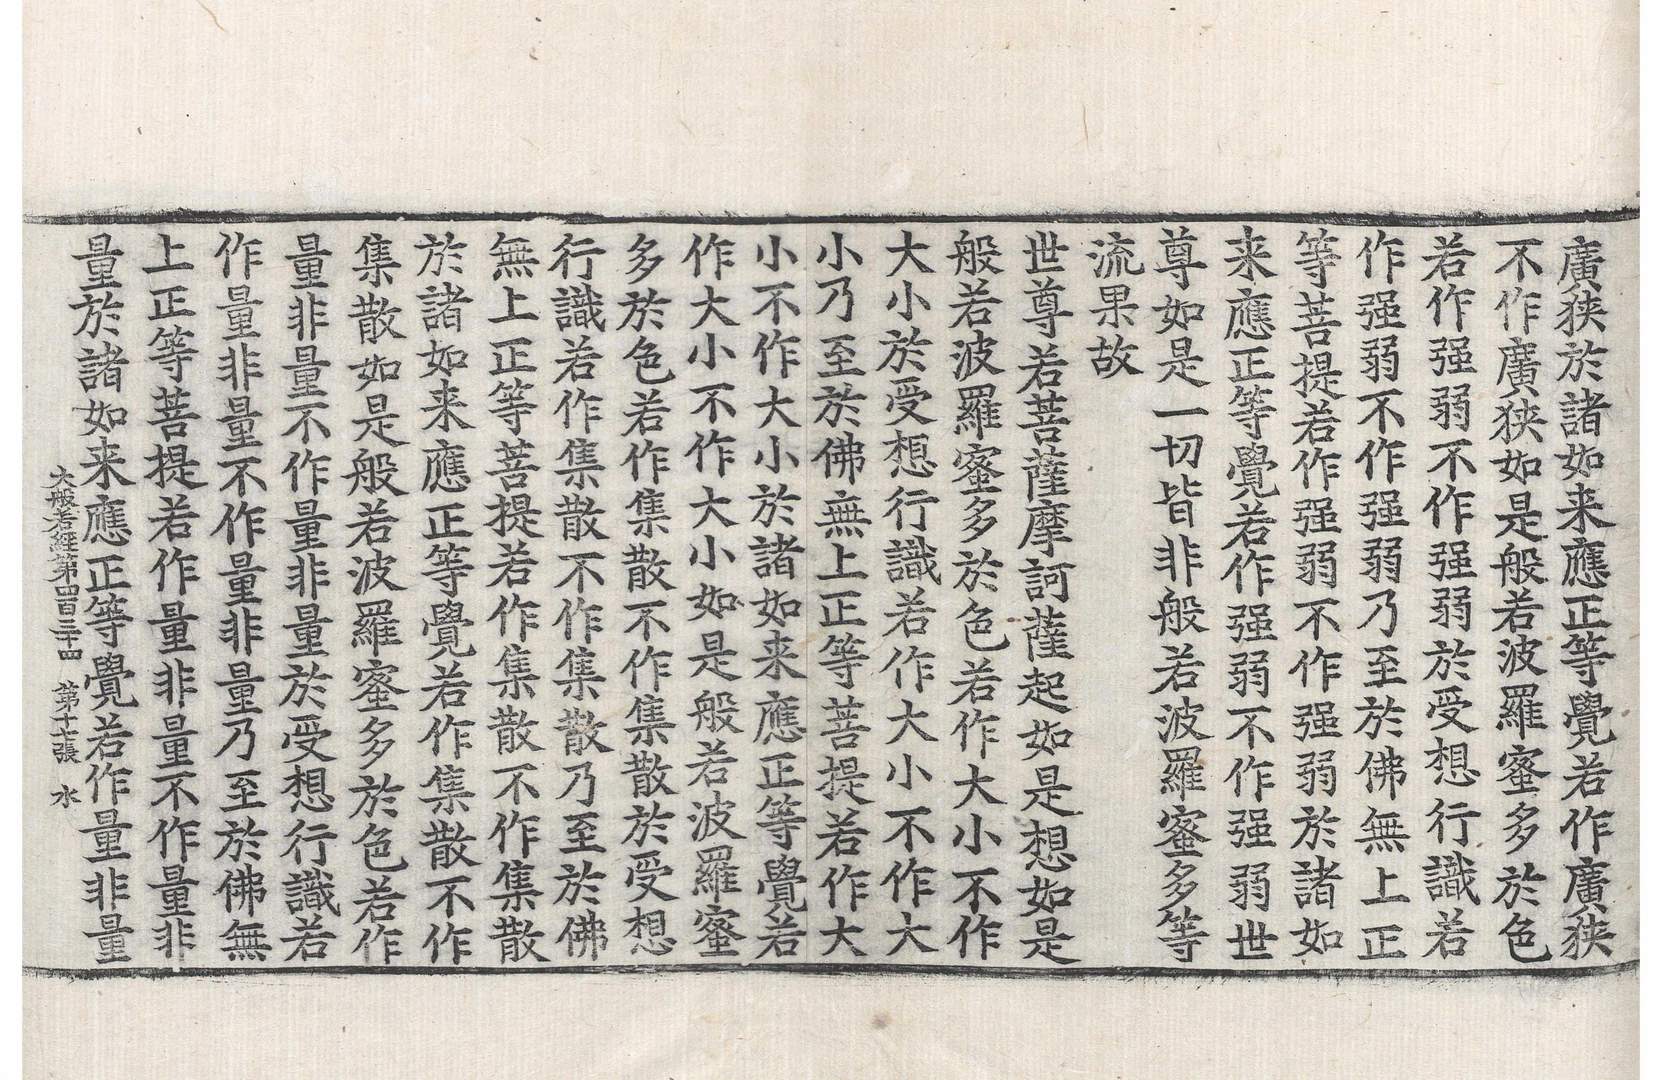 廣狭於諸如来應正等覺若作廣狭
不作廣狭如是般若波羅蜜多於色
若作强弱不作强弱於受想行識若
作强弱不作强弱乃至於佛無上正
等菩提若作强弱不作强弱於諸如
来應正等覺若作强弱不作强弱世
尊如是一切皆非般若波羅蜜多等
流果故
世尊若菩薩摩訶薩起如是想如是
般若波羅蜜多於色若作大小不作
大小於受想行識若作大小不作大
小乃至於佛無上正等菩提若作大
小不作大小於諸如来應正等覺若
作大小不作大小如是般若波羅蜜
多於色若作集散不作集散於受想
行識若作集散不作集散乃至於佛
無上正等菩提若作集散不作集散
於諸如来應正等覺若作集散不作
集散如是般若波羅蜜多於色若作
量非量不作量非量於受想行識若
作量非量不作量非量乃至於佛無
上正等菩提若作量非量不作量非
量於諸如来應正等覺若作量非量
大般若經第四百三十四 第十七張 水